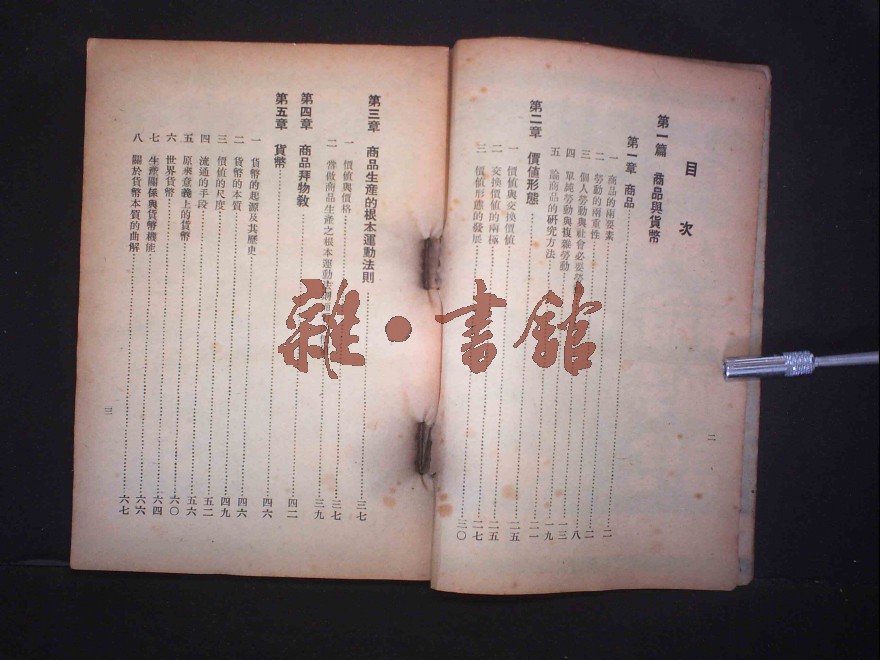 目次
第一篇 商品與貨幣
第一章 商品……二
一 商品的兩要素……二
二 勞動的兩重性……二
三 個人勞動與社會必要勞……八
四 單純勞動與複雜勞動……一三
五 論商品的研究方法……一九
第二章 價値形態……二一
一 價値與交換價値……二五
二 交換價値的兩極……二五
三 價値形態的發展……二七
三〇
二
第三章 商品生產的根本運動法則……三七
一 價値與價格……三七
二 當做商品生產之根本運動法則……三九
第四章 商品拜物教……四二
第五章 貨幣……四六
一 貨幣的起源及其歷史……四六
二 貨幣的本質……四九
三 價値的尺度……五二
四 流通的手段……五六
五 原來意義上的貨幣……六〇
六 世界貨幣……六四
七 生產關係與貨幣機能……六六
八 關於貨幣本質的曲解……六七
三
雜·書館